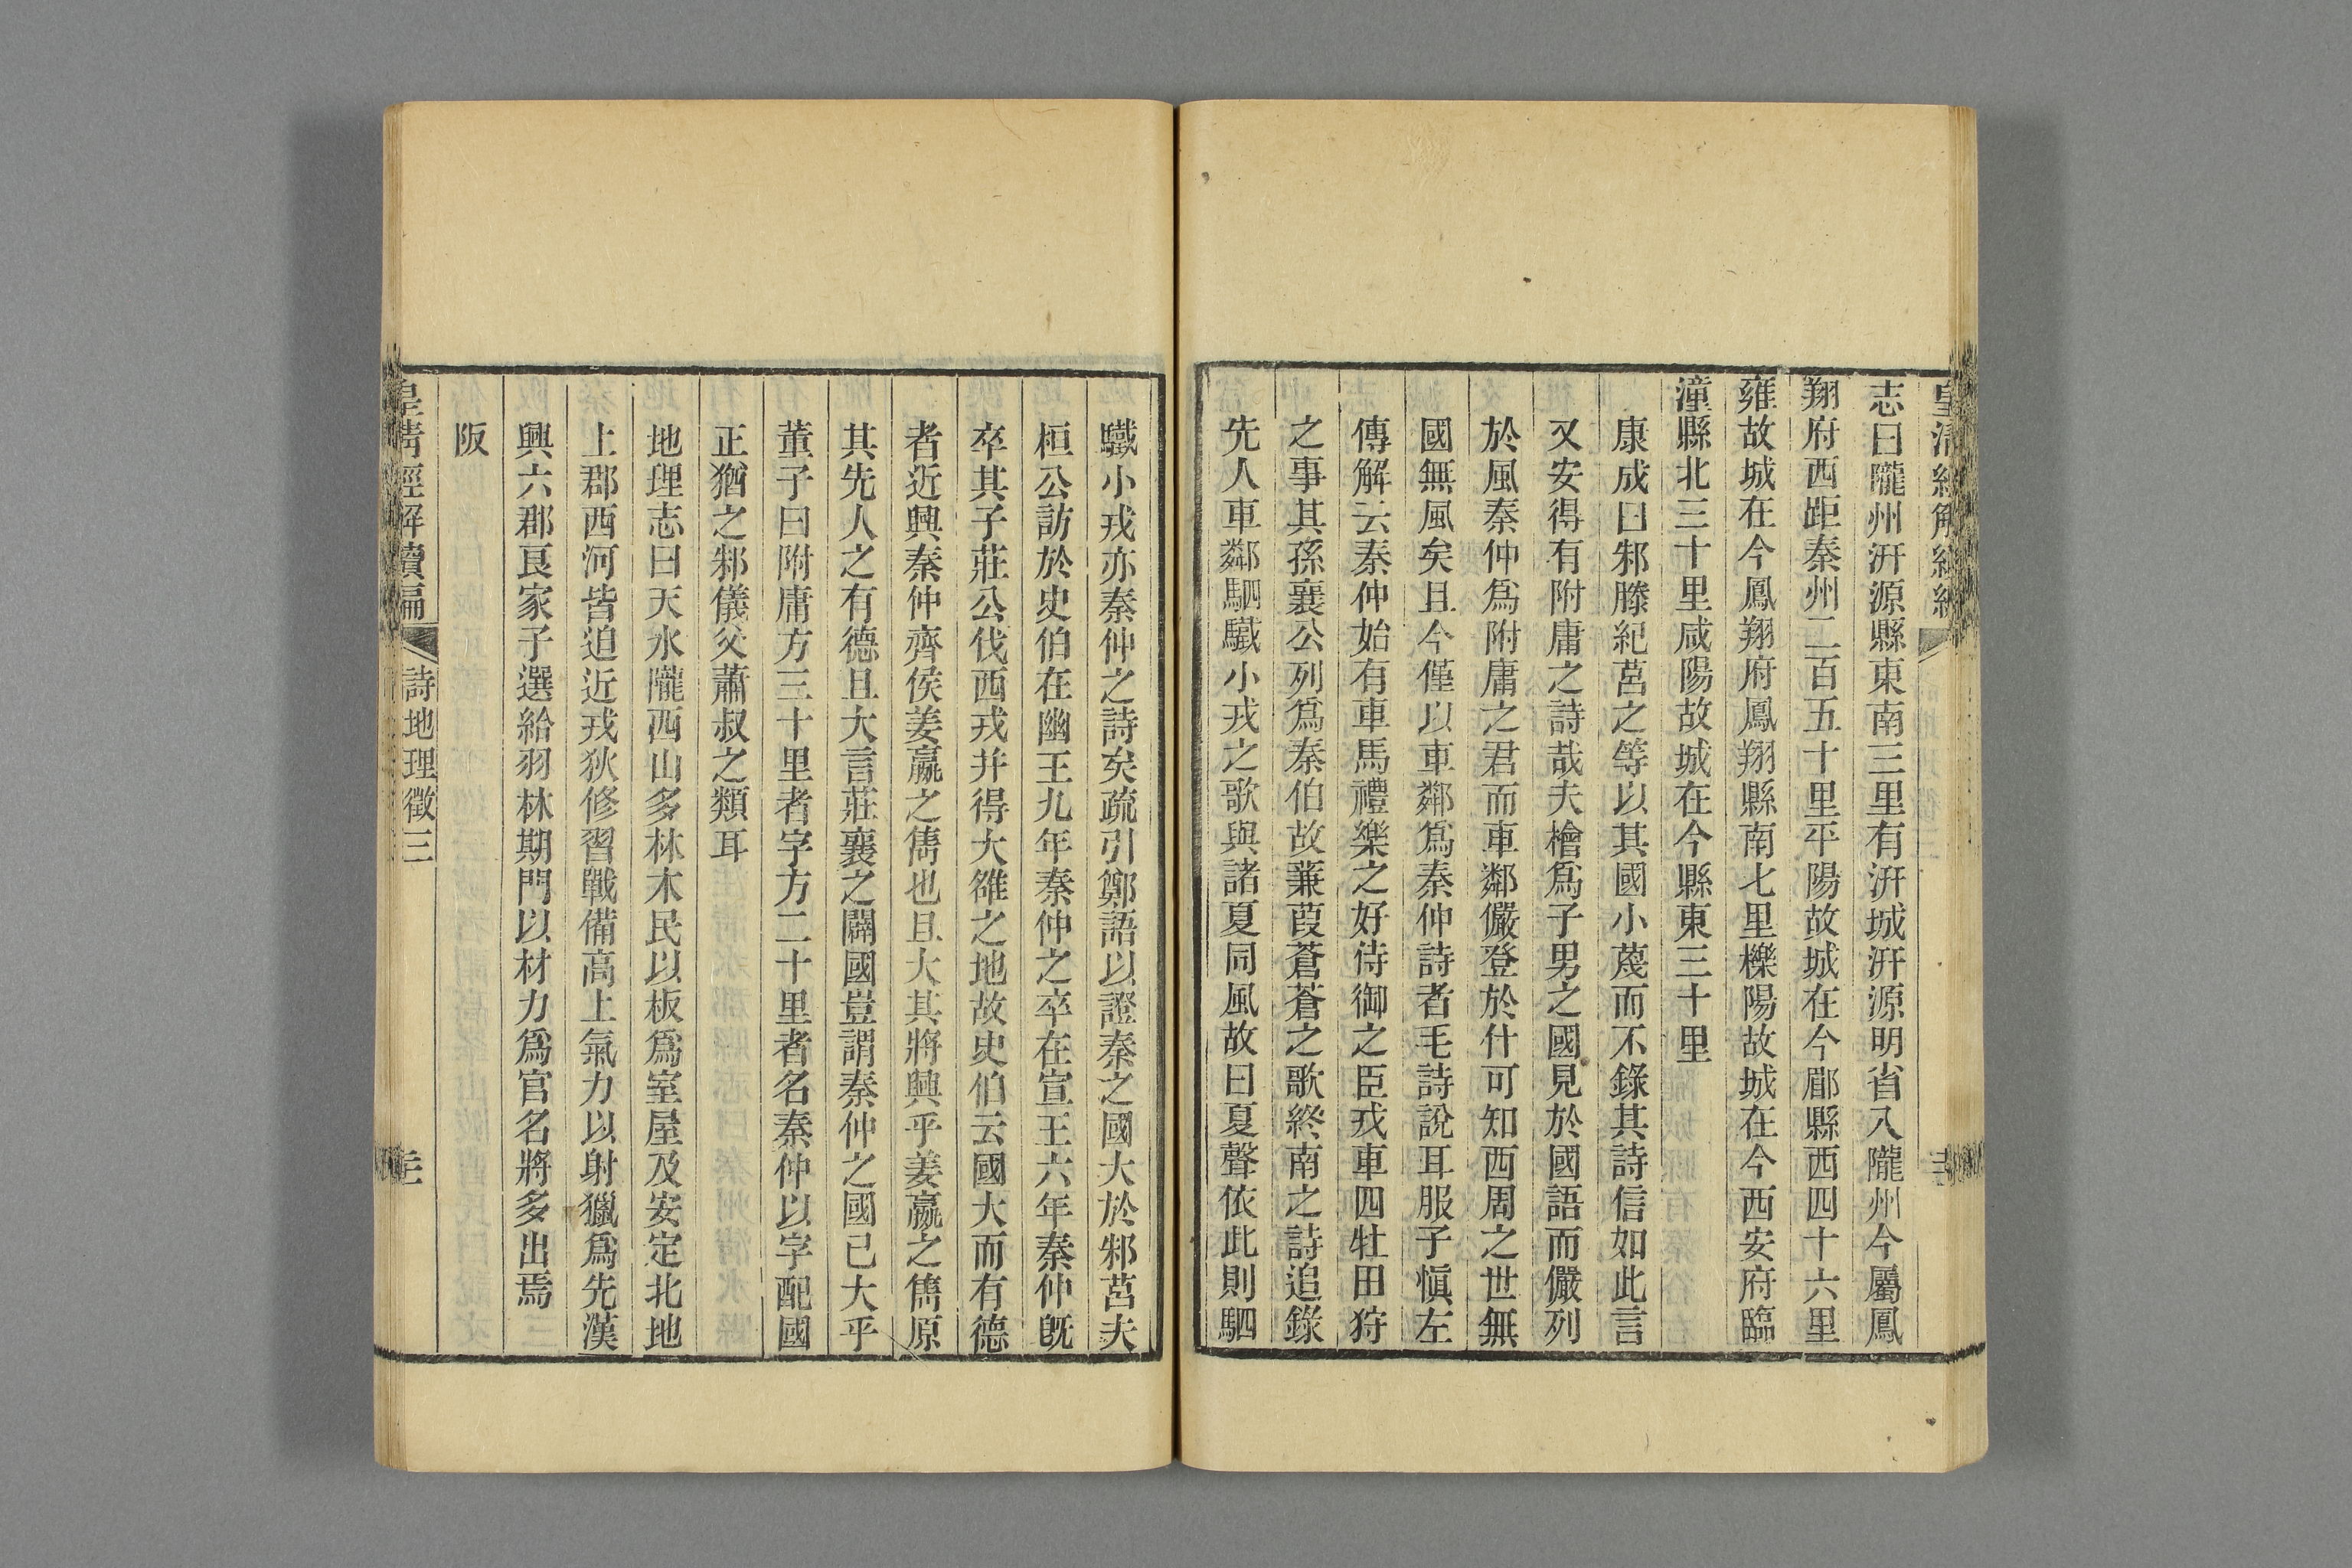 志曰隴州汧源縣東南三里有汧城汧源明省入隴州今屬鳳
翔府西距秦州二百五十里平陽故城在今郿縣西四十六里
雍故城在今鳳翔府鳳翔縣南七里櫟陽故城在今西安府臨
潼縣北三十里咸陽故城在今縣東三十里
康成曰邾滕紀莒之等以其國小蔑而不錄其詩信如此言
又安得有附庸之詩哉夫檜爲子男之國見於國語而儼列
於風秦仲爲附庸之君而車鄰儼登於什可知西周之世無
國無風矣且今僅以車鄰爲秦仲詩者毛詩說耳服子愼左
傳解云秦仲始有車馬禮樂之好侍御之臣戎車四牡田狩
之事其孫襄公列爲秦伯故蒹葭蒼蒼之歌終南之詩追錄
先人車鄰駟驖小戎之歌與諸夏同風故曰夏聲依此則駟
驖小戎亦秦仲之詩矣疏引鄭語以證秦之國大於邾莒夫
桓公訪於史伯在幽王九年秦仲之卒在宣王六年秦仲旣
卒其子莊公伐西戎并得大雒之地故史伯云國大而有德
者近興秦仲齊侯姜嬴之儁也且大其將興乎姜嬴之儁原
其先人之有德且大言莊襄之闢國豈謂秦仲之國已大乎
董子曰附庸方三十里者字方二十里者名秦仲以字配國
正猶之邾儀父蕭叔之類耳
地理志曰天水隴西山多林木民以板爲室屋及安定北地
上郡西河皆迫近戎狄修習戰備高上氣力以射獵爲先漢
興六郡良家子選給羽林期門以材力爲官名將多出焉
阪
皇清經解續編
詩地理徵三